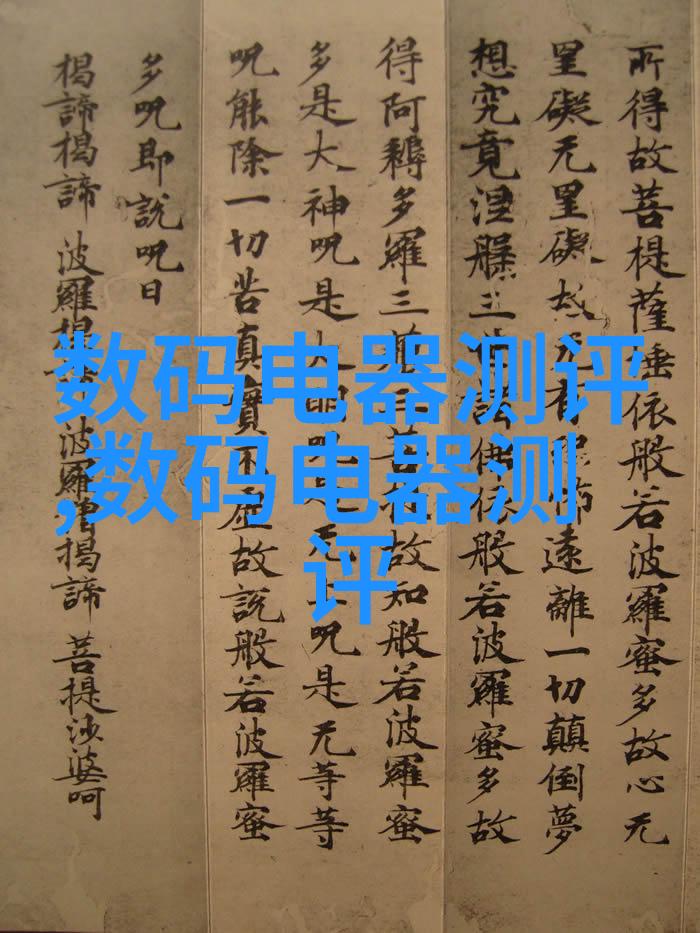 所得故菩提薩埵依般若波羅蜜多故心无
罣礙无罣礙故无有怖遠離一切顛倒夢
想究竟涅槃三諸佛依般若波羅蜜多故
得阿耨多羅三藐三菩提故知般若波羅蜜
多是大神呪是大明呪是无上呪是无等等
呪能除一切苦真實不虛故說般若波羅蜜
多呪即說呪曰
揭諦揭諦 波羅揭諦 波羅僧揭諦 菩提沙婆呵
数码电器测评
,数码电器测
评